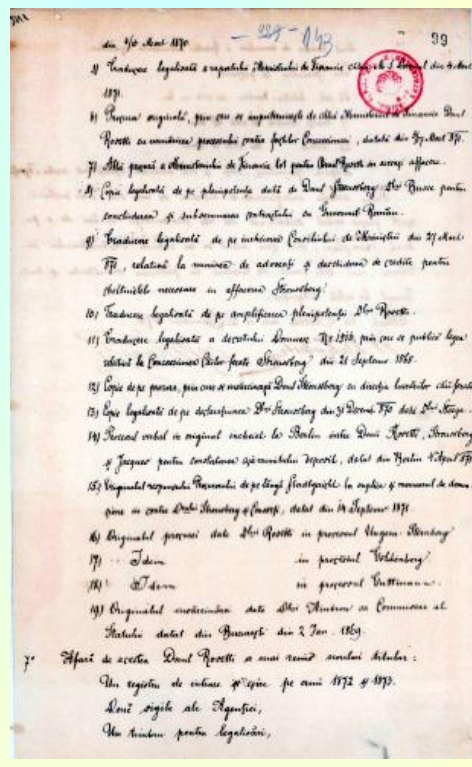 143
99
din 3/15 Mart 1870.
5) Traducere legalisată a raportului Ministrului de Finanțe către M. S. Domnul din 4 Mart
1871.
6) Procura originală, prin care se împuternicește de către Ministerul de Finanțe Domnul
Rosetti cu urmărirea procesului contra foștilor Concesionari, datată din Mart 871.
7) Altă procură a Ministerului de Finanțe tot pentru Domnul Rosetti în aceeași afacere.
8) Copie legalisată de pe plenipotența dată de Domnul Strousberg Dlui Busse pentru
concluderea și subsemnarea contractului cu Guvernul Român.
9) Traducere legalisată, de pe încheierea Consiliului de Miniștri din 27 Mart
871, relativă la numirea de advocați și deschiderea de credite pentru
cheltuielile necesare în afacerea Strousberg.
10) Traducere legalisată de pe amplificarea plenipotenței Dlui Rosetti.
11) Traducere legalisată a decretului Domnesc No 1516, prin care se publică legea
relativă la Concesiunea Căilor ferate Strousberg din 21 Septemv 1868.
12) Copie de pe procura, prin care se însărcinează Domnul Strousberg cu direcția lucrărilor căii ferate
13) Copie legalisată de pe declarațiunea Dlui Strousberg din 31 Decemv 870 dată Dlui Steege.
14) Procesul verbal în original încheiat la Berlin între Domnii Rosetti, Strousberg
și Jacques pentru constatarea depozit, datat din Berlin 4 April 871
15) Originalul răspunsului Procurorului de pe lângă Stadtgericht la suplica și
în contra Dlui Strousberg și Consorți, datat din 14 Septemv 1871
16) Originalul procurei date Dlui Rosetti în procesul Ungern Sternberg
17) Idem în procesul Goldenberg
18) Idem în procesul Guttmann.
19) Originalul date Dlui ca Comisar al
Statului datat din București din 2 Jan. 1869.
7° Afară de acestea Domnul Rosetti a mai remis titular:
Un registru de intrare și eșire pe anii 1872 și 1873.
Două sigile ale Agenției,
Un timbru pentru legalisări,